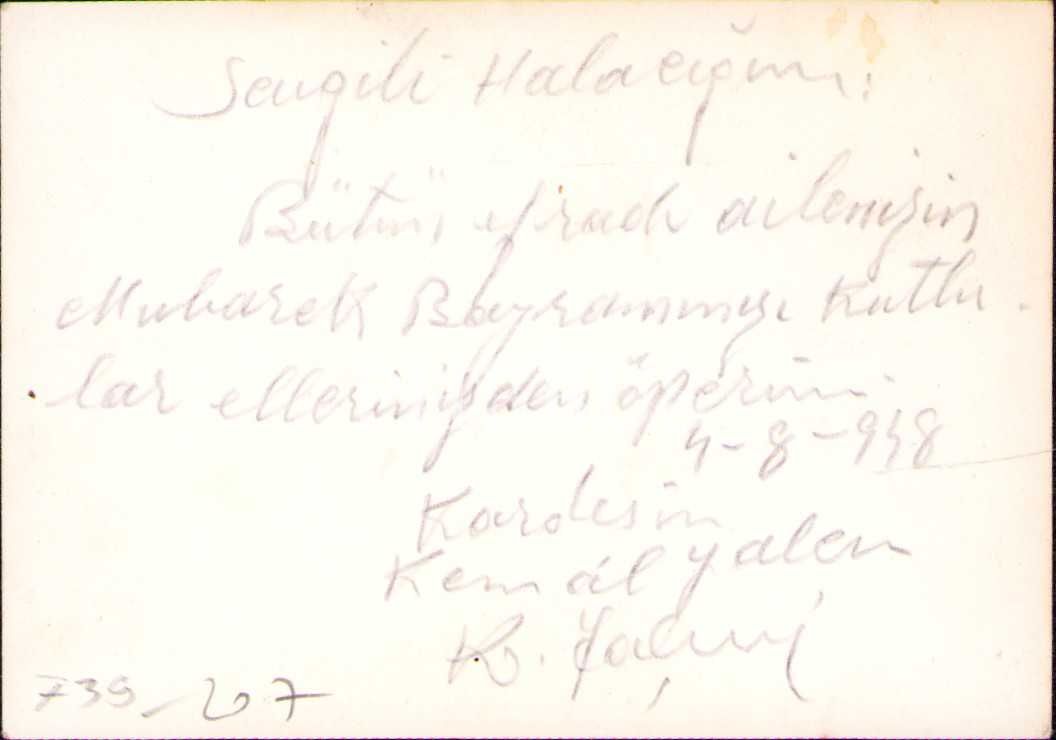 Sevgili Halacığım:
Bütün efradı ailenizin
Mubarek Bayramınızı kutlu
lar ellerinizden öperim.
4-8-948
Kardesin
Kemâl yalçın
K. Yalçın
739-207